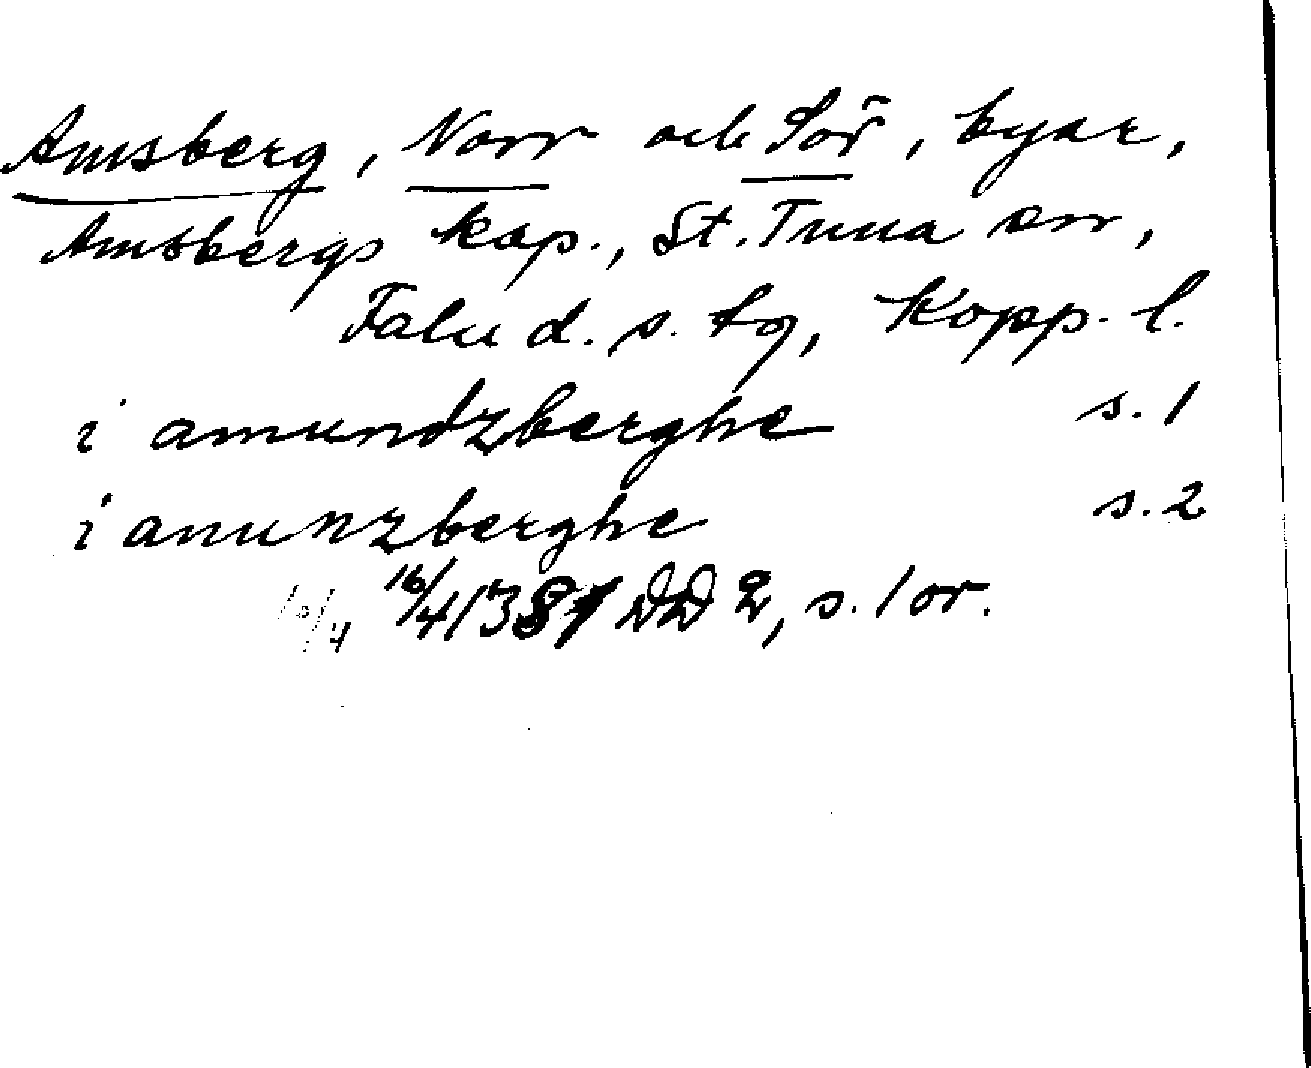 Amsberg, Norr och Sör, byar,
Amsbergs kap., St. Tuna sn,
Falu d. s. fg, Kopp. l.
i amundzberghe s. 1
i anunzberghe s. 2
16/4 1381 DD 2, s. 1 or.